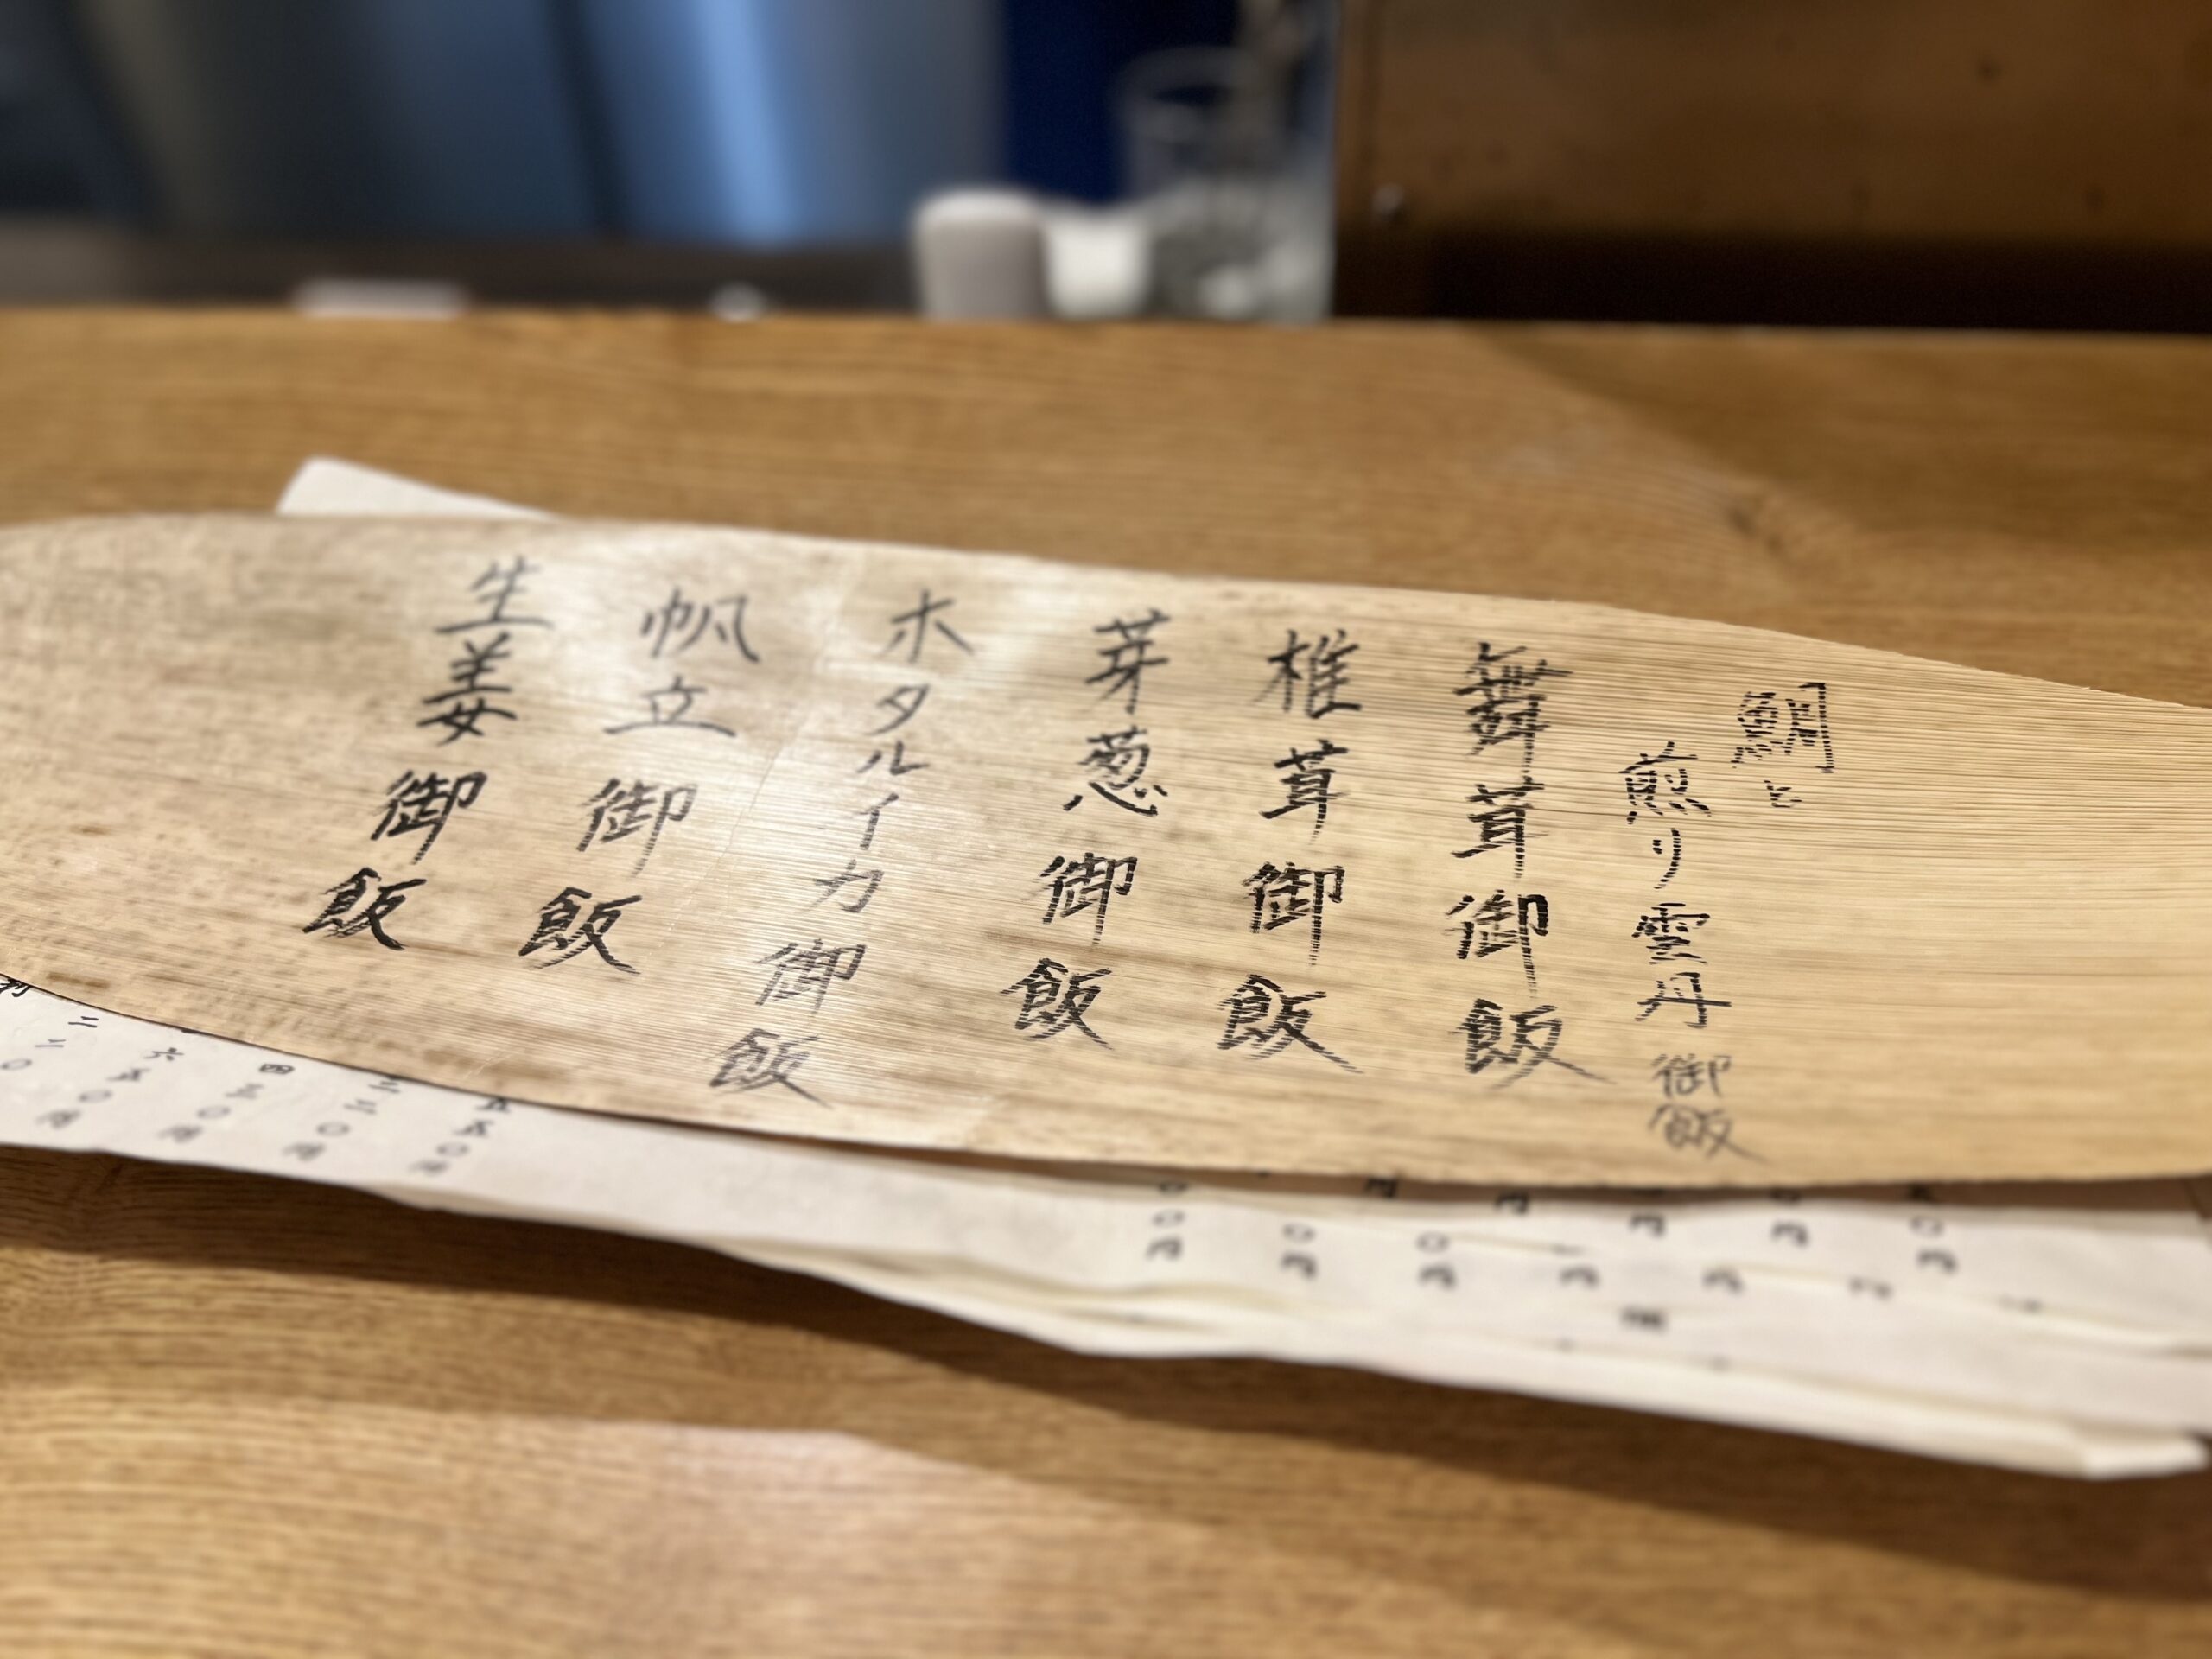 鯛と
煎り雲丹御飯
舞茸御飯
椎茸御飯
芽葱御飯
ホタルイカ御飯
帆立御飯
生姜御飯